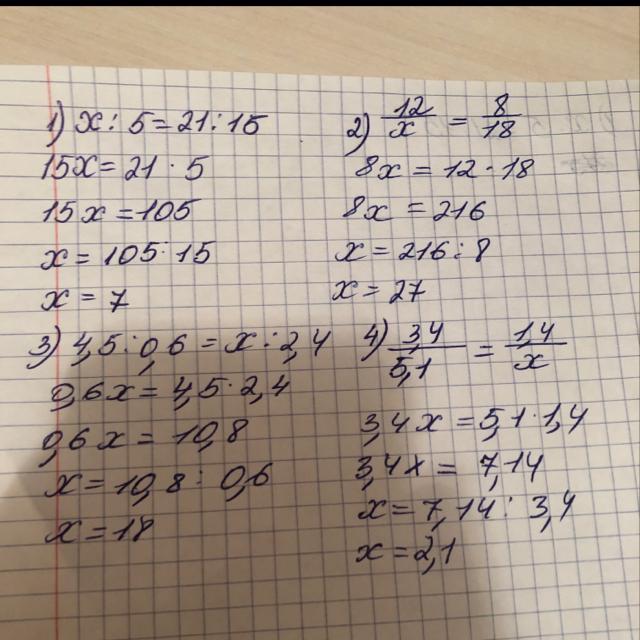 1) x : 5 = 21 : 15
15x = 21 · 5
15x = 105
x = 105 : 15
x = 7
2) 12/x = 8/18
8x = 12 · 18
8x = 216
x = 216 : 8
x = 27
3) 4,5 : 0,6 = x : 2,4
0,6x = 4,5 · 2,4
0,6x = 10,8
x = 10,8 : 0,6
x = 18
4) 3,4/5,1 = 1,4/x
3,4x = 5,1 · 1,4
3,4x = 7,14
x = 7,14 : 3,4
x = 2,1